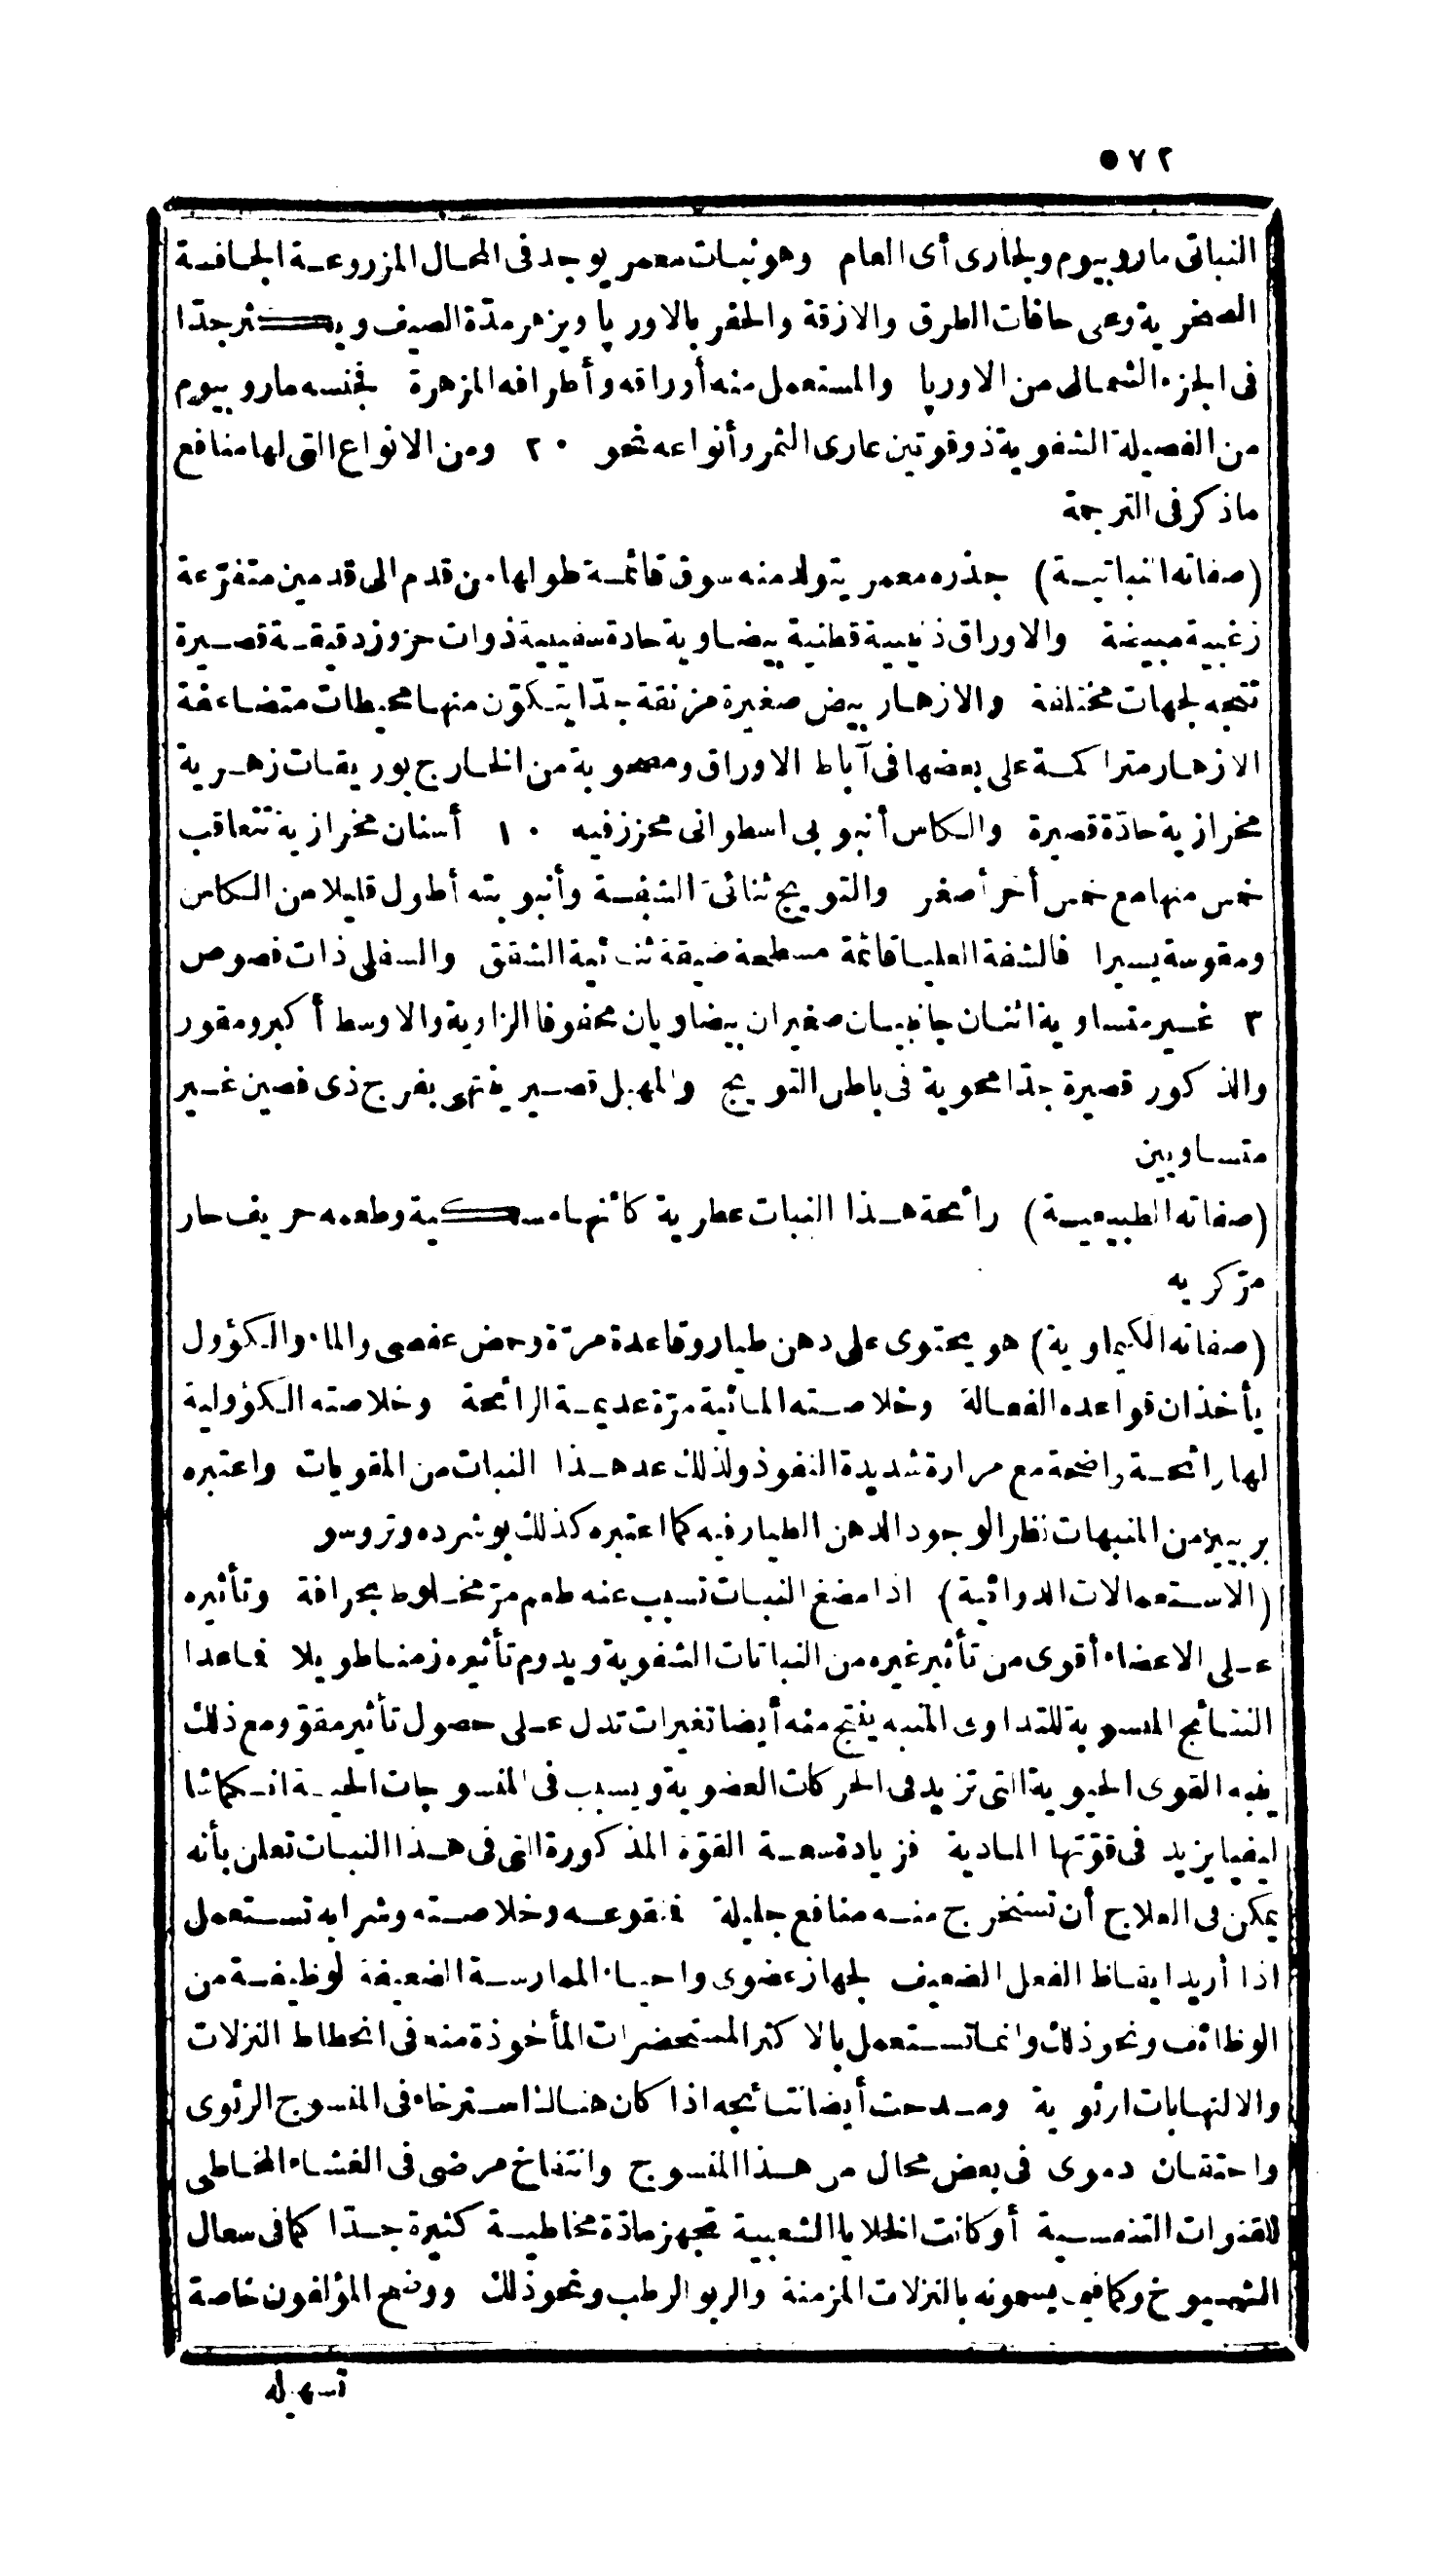 ٥٧٢
النباتى ماروبيوم ولجارى أى العام وهو نبات معمر يوجد فى المحال المزروعة الجافة
الصخرية وعى حافات الطرق والازقة والحفر بالاوربا ويزهر مدّة الصيف ويكثر جدّا
فى الجزء الشمالى من الاوربا والمستعمل منه أوراقه وأطرافه المزهرة فجنسه ماروبيوم
من الفصيلة الشفوية ذو قوتين عارى الثمر وأنواعه نحو ٢٠ ومن الانواع التى لها منافع
ماذكر فى الترجمة
(صفاته النباتية) جذره معمر يتولد منه سوق قائمة طولها من قدم الى قدمين متفرّعة
زغبية مبيضة والاوراق ذنيبية قطنية بيضاوية حادة سنينية ذوات حزوز دقيقة قصيرة
تتجه لجهات مختلفة والازهار بيض صغيرة مزنقة جدّا يتكوّن منها محيطات متضاعفة
الازهار متراكمة على بعضها فى آباط الاوراق ومصحوبة من الخارج بوريقات زهرية
مخرازية حادّة قصيرة والكاس أنبوبى اسطوانى محزز فيه ١٠ أسنان مخرازية تتعاقب
خمس منها مع خمس أخر أصغر والتويج ثنائى الشفة وأنبوبته أطول قليلا من الكاس
ومقوسة يسيرا فالشفة العليا قائمة مسطحة ضيقة ثنائية الشقق والسفلى ذات فصوص
٣ غير متساوية اثنان جانبيان صغيران بيضاويان محفوفا الزاوية والاوسط أكبر ومقور
والذكور قصيرة جدّا محوية فى باطن التويج والمهبل قصير ينتهى بفرج ذى فصين غير
متساويين
(صفاته الطبيعية) رائحة هذا النبات عطرية كأنها مسكية وطعمه حريف حار
مرّ كريه
(صفاته الكيماوية) هو يحتوى على دهن طيار وقاعدة مرّة وحمض عفصى والماء والكؤول
يأخذان قواعده الفعالة وخلاصته المائية مرّة عديمة الرائحة وخلاصته الكؤولية
لها رائحة واضحة مع مرارة شديدة النفوذ ولذلك عد هذا النبات من المقويات واعتبره
بربيير من المنبهات نظرا لوجود الدهن الطيار فيه كما اعتبره كذلك بوشرده وتروسو
(الاستعمالات الدوائية) اذا مضغ النبات تسبب عنه طعم مرّ مخلوط بحرافة وتأثيره
على الاعضاء أقوى من تأثير غيره من النباتات الشفوية ويدوم تأثيره زمنا طويلا فماعدا
النتائج المنسوبة للتداوى المنبه ينتج منه أيضا تغيرات تدل على حصول تأثير مقوّ ومع ذلك
ينبه القوى الحيوية التى تزيد فى الحركات العضوية ويسبب فى المنسوجات الحية انكماشا
ليفيا يزيد فى قوّتها المادية فزيادة سعة القوّة المذكورة التى فى هذا النبات تعلن بأنه
يمكن فى العلاج أن تستخرج منه منافع جليلة فنقوعه وخلاصته وشرابه تستعمل
اذا أريد ايقاظ الفعل الضعيف لجهاز عضوى واحياء الممارسة الضعيفة لوظيفة من
الوظائف ونحو ذلك وانما تستعمل بالاكثر المستحضرات المأخوذة منه فى انحطاط النزلات
والالتهابات الرئوية ومدحت أيضا نتائجه اذا كان هناك استرخاء فى المنسوج الرئوى
واحتقان دموى فى بعض محال من هذا المنسوج وانتفاخ مرضى فى الغشاء المخاطى
للقنوات التنفسية أو كانت الخلايا الشعبية تجهز مادّة مخاطية كثيرة جدّا كما فى سعال
الشيوخ وكما فيما يسمونه بالنزلات المزمنة والربو الرطب ونحو ذلك ووضح المؤلفون خاصة
تسهيله